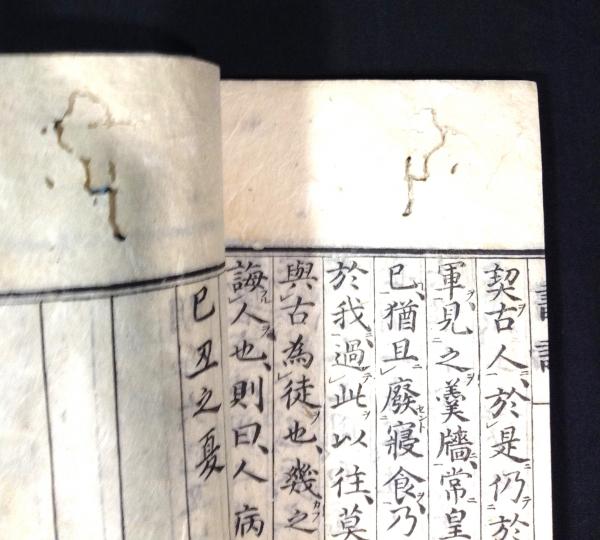 契古人於是仍於
軍見之羹牆常皇
已猶且廢寢食乃
於我過此以往莫
與古為徒也幾之
誨人也則曰人病
已丑之夏